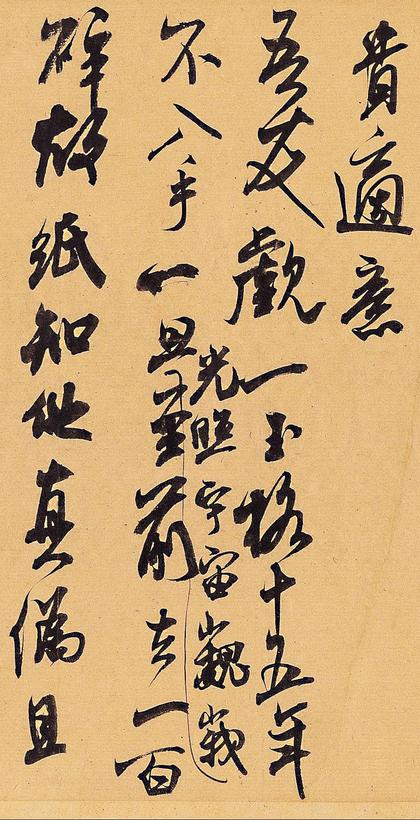 貴適意
吾友覷一玉格十五年
不入手一旦光照宇宙巍峩至前去一百
碎故紙知他真偽且